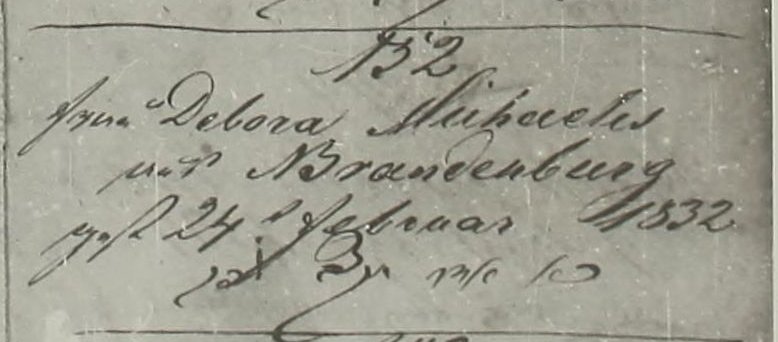 152
frau Debora Michaelis
aus Brandenburg
gest 24t Februar 1832